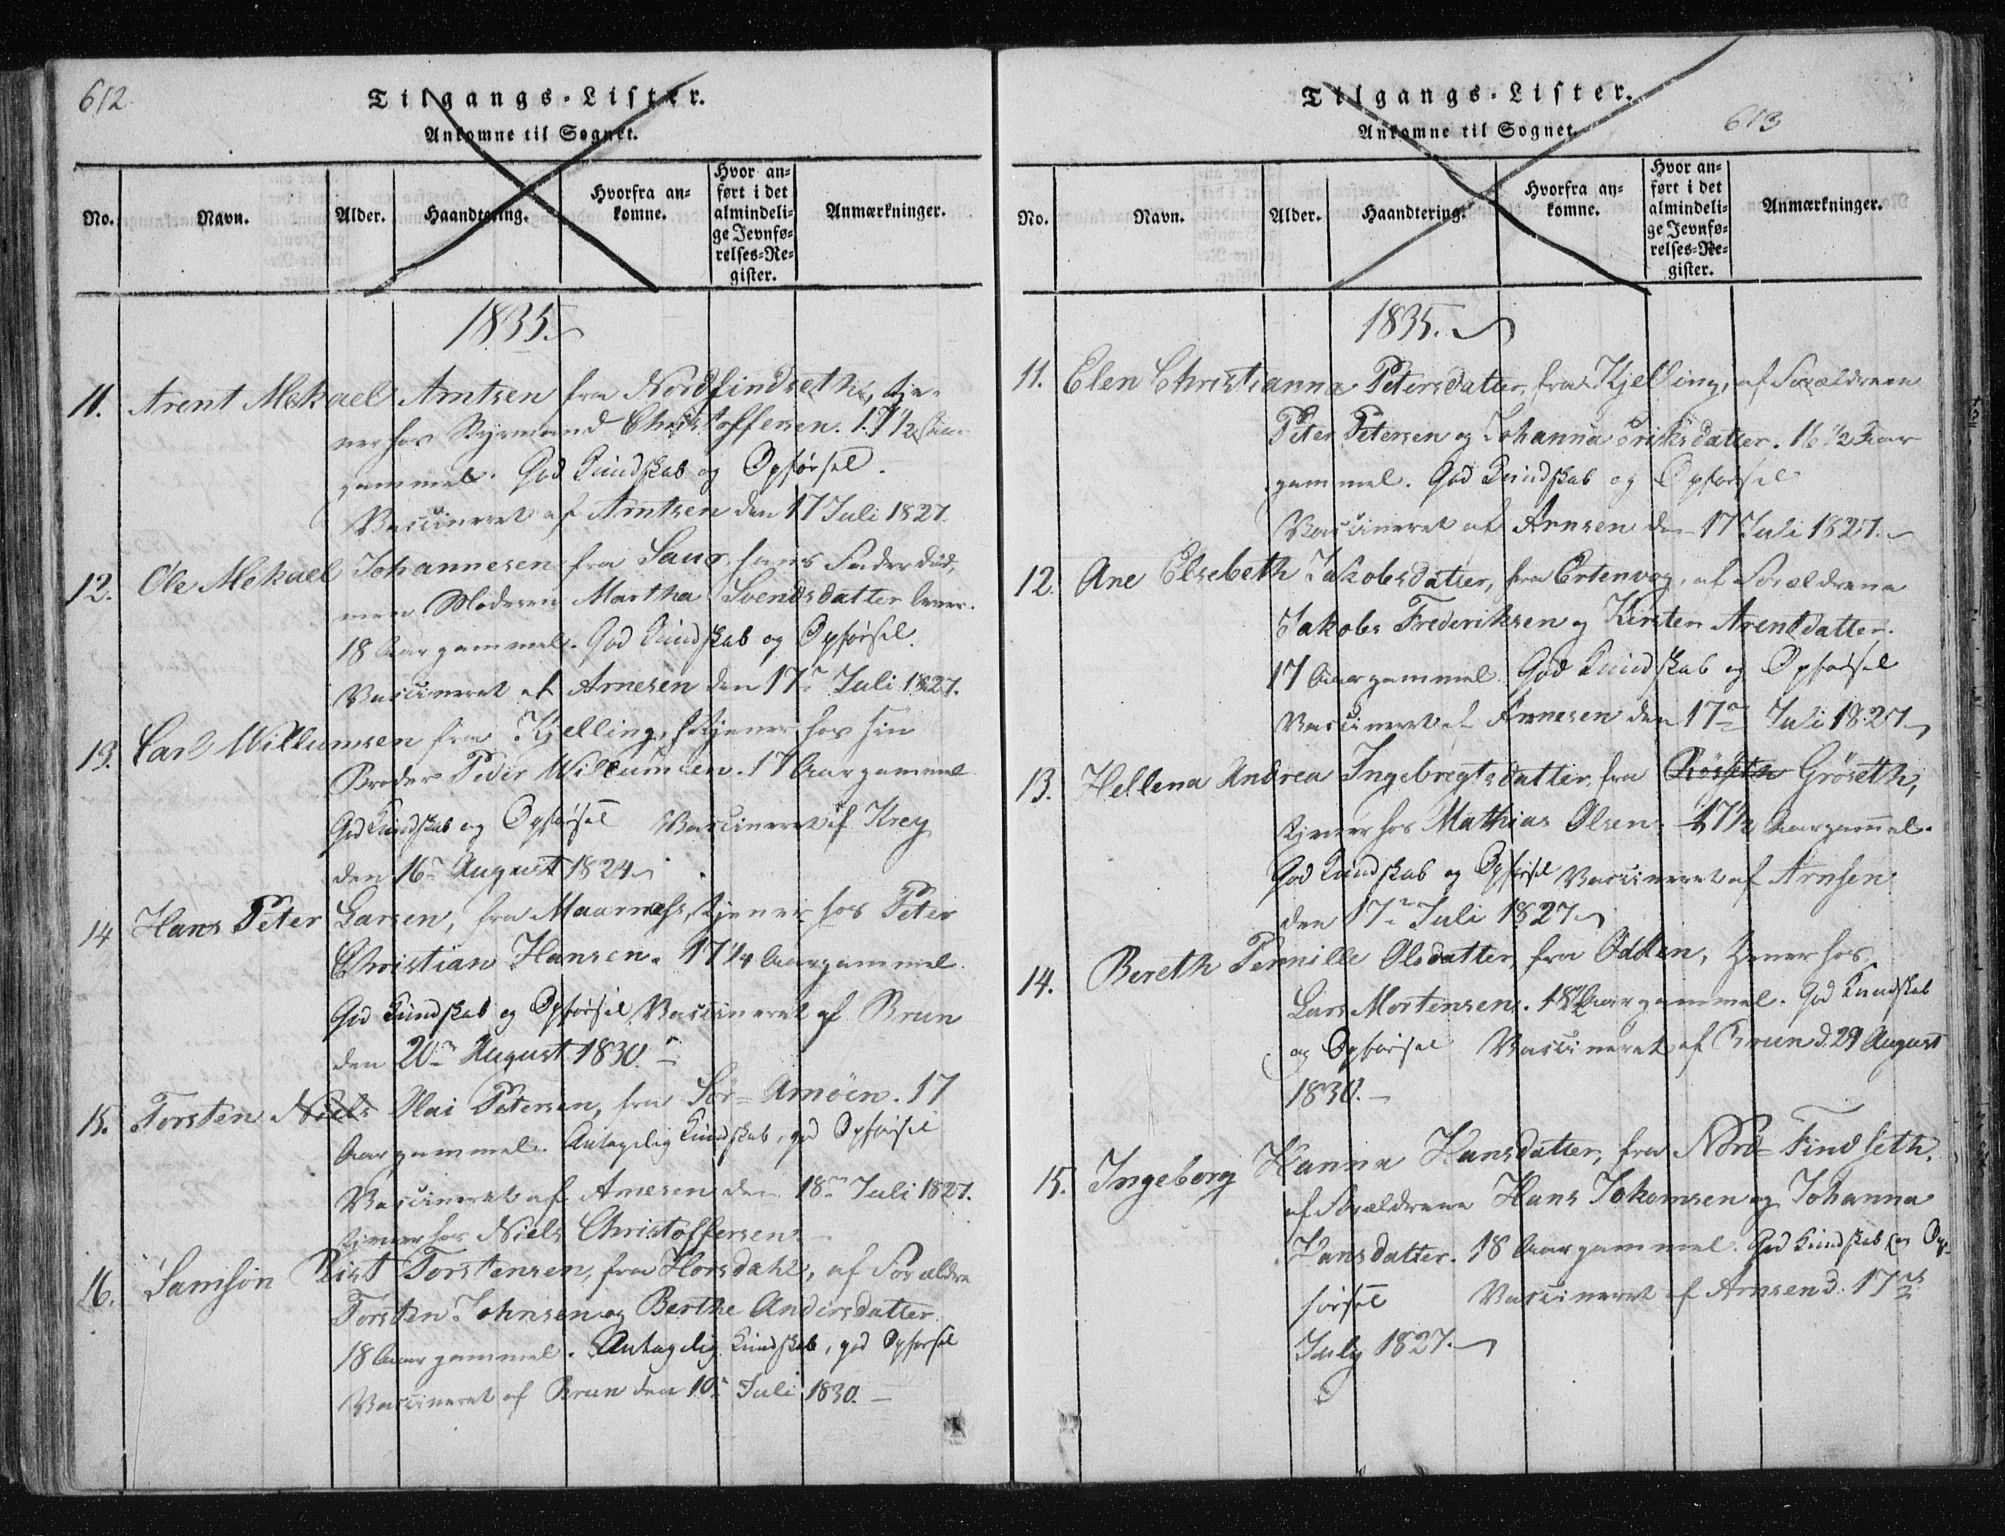 612
Tilgangs-Lister.
Ankomne til Sognet.
No.
Navn.
Alder.
Haandtering.
Hvorfra an-
komne.
Hvor an-
ført i det
almindeli-
ge Jevnfø-
relses-Re-
gister.
Anmærkninger.
1835.
11. Arent Mekael Arntsen fra Nordfindseth, tje-
ner hos Styrmand Christoffersen. 17 1/2 Aar
gammel. God Kundskab og Opførsel.
Vaccineret af Arntsen den 17 Juli 1827.
12. Ole Mekael Johannesen fra Saur, hans Fader död,
men Moderen Martha Svendsdatter lever.
18 Aar gammel. God Kundskab og Opførsel.
Vaccineret af Arnesen den 17de Juli 1827.
13. Carl Willumsen fra Kjelling, tjener hos sin
Broder Peder Willumsen. 17 Aar gammel
God Kundskab og Opførsel Vaccineret af Krey
den 16de August 1824
14 Hans Peter Larsen, fra Maarnæs, tjener hos Peter
Christian Hansen. 17 1/4 Aar gammel.
God Kundskab og Opførsel, Vaccineret af Brun
den 20de August 1830.
15. Torsten Niels Olai Petersen, fra Sör-Arnöen. 17
Aar gammel. Antagelig Kundskab, god Opførsel
Vaccineret af Arnesen den 18de Juli 1827.
tjener hos Niels Christoffersen.
16. Samson Qvist Torstensen, fra Horsdahl, af Forældre
Torsten Johnsen og Berthe Andersdatter
18 Aar gammel. Antagelig Kundskab, god Opførsel
Vaccineret af Brun den 10de Juli 1830.
Tilgangs-Lister.
Ankomne til Sognet.
613
No.
Navn.
Alder.
Haandtering.
Hvorfra an-
komne.
Hvor an-
ført i det
almindeli-
ge Jevnfø-
relses-Re-
gister.
Anmærkninger.
1835.
11. Elen Christianna Petersdatter, fra Kjelling, af Forældrene
Peter Petersen og Johanna Eriksdatter. 16 1/2 Aar
gammel. God Kundskab og Opførsel
Vaccineret af Arnsen den 17 Juli 1827.
12. Ane Elsebeth Jakobsdatter, fra Ertenvog, af Forældrene
Jakobs Frederiksen og Kirsten Arentdatter.
17 Aar gammel. God Kundskab og Opførsel
Vaccineret af Arnesen den 17de Juli 1827
13. Hellena Andrea Ingebregtsdatter, fra Rösseth Gröseth,
tjener hos Mathias Olsen. 17 1/2 Aar gammel.
God Kundskab og Opførsel Vaccineret af Arnsen
den 17de Juli 1827
14. Bereth Pernille Olsdatter, fra Odden, tjener hos
Lars Mortensen. 18 Aar gammel. God Kundskab
og Opførsel Vaccineret af Brun d. 29 August
1830.
15. Ingeborg Hanna Hansdatter, fra Nord-Findseth.
af Forældrene Hans Jokomsen og Johanna
Hansdatter. 18 Aar gammel. God Kundskab og Op-
førsel Vaccineret af Arnsen d. 17de
July 1827.